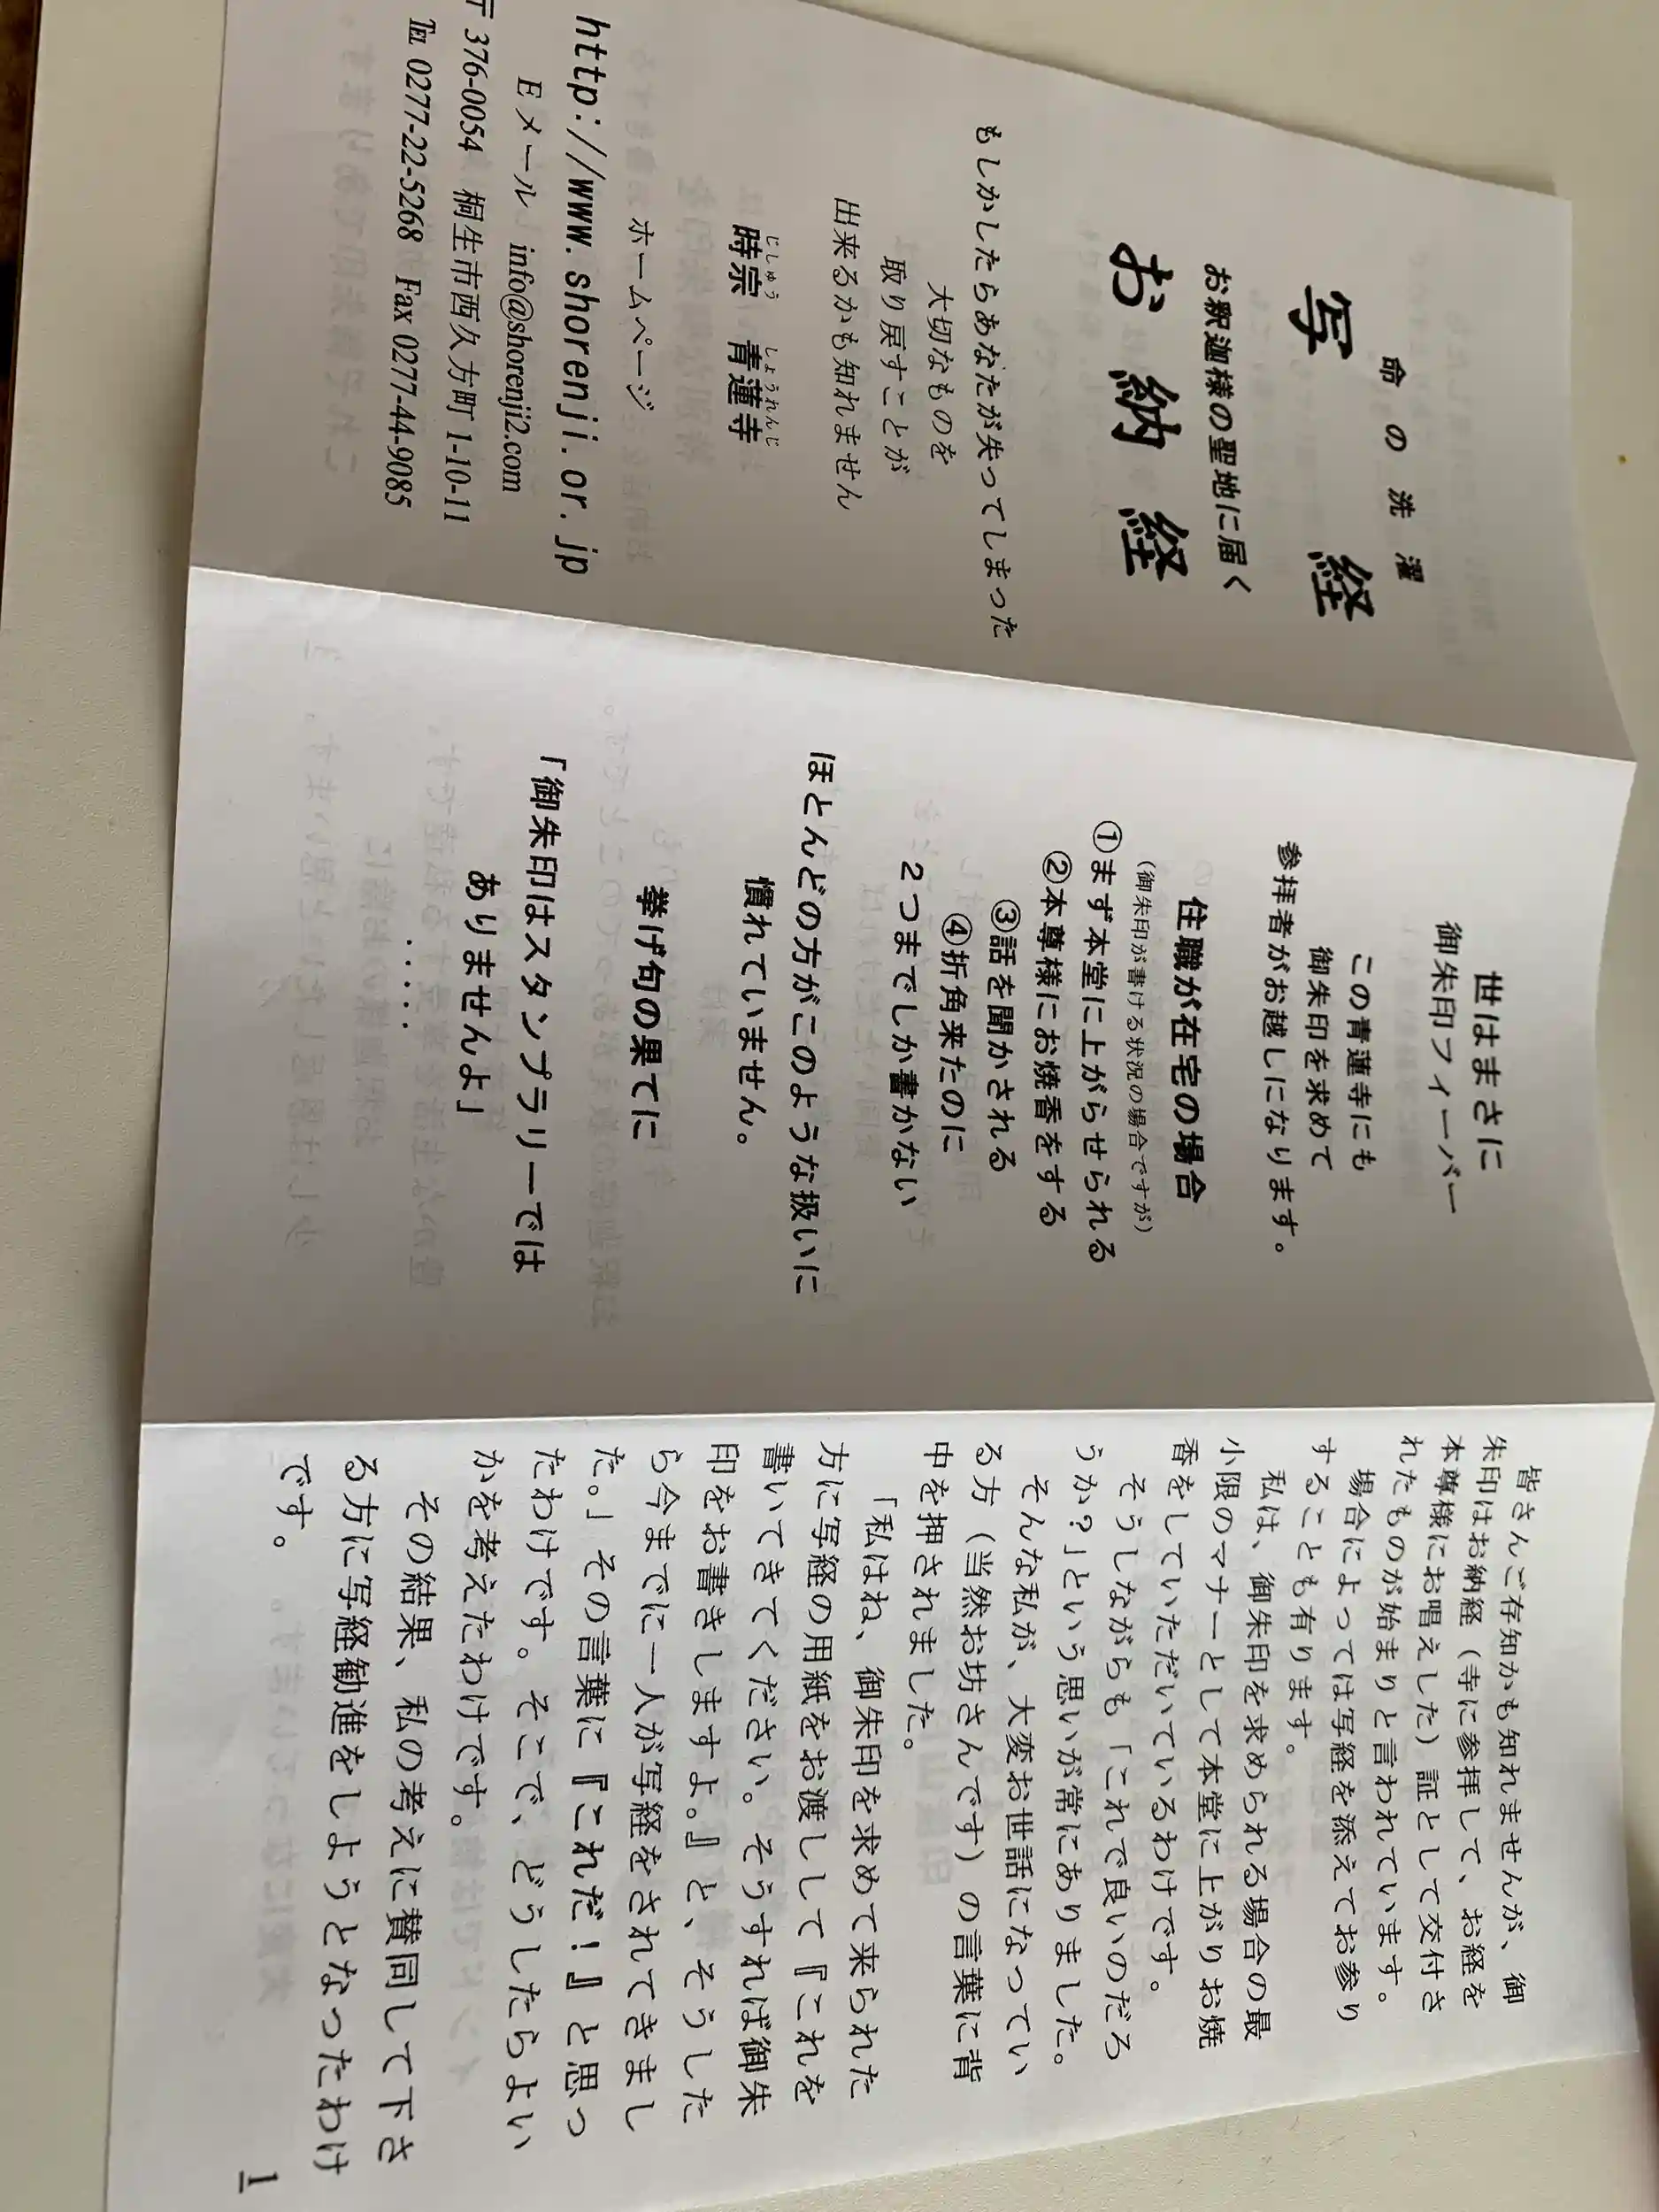 命の洗濯
写経
お釈迦様の聖地に届く
お納経
もしかしたらあなたが失ってしまった
大切なものを
取り戻すことが
出来るかも知れません
じしゅう しょうれんじ
時宗 青蓮寺
ホームページ
http://www.shorenji.or.jp
Eメール info@shorenji2.com
〒376-0054 桐生市西久方町 1-10-11
℡ 0277-22-5268 Fax 0277-44-9085
世はまさに
御朱印フィーバー
この青蓮寺にも
御朱印を求めて
参拝者がお越しになります。
住職が在宅の場合
(御朱印が書ける状況の場合ですが)
①まず本堂に上がらせられる
②本尊様にお焼香をする
③話を聞かされる
④折角来たのに
２つまでしか書かない
ほとんどの方がこのような扱いに
慣れていません。
挙げ句の果てに
「御朱印はスタンプラリーでは
ありませんよ」
・・・・
皆さんご存知かも知れませんが、御
朱印はお納経（寺に参拝して、お経を
本尊様にお唱えした）証として交付さ
れたものが始まりと言われています。
場合によっては写経を添えてお参り
することも有ります。
私は、御朱印を求められる場合の最
小限のマナーとして本堂に上がりお焼
香をしていただいているわけです。
そうしながらも「これで良いのだろ
うか？」という思いが常にありました。
そんな私が、大変お世話になってい
る方（当然お坊さんです）の言葉に背
中を押されました。
「私はね、御朱印を求めて来られた
方に写経の用紙をお渡しして『これを
書いてきてください。そうすれば御朱
印をお書きしますよ。』と、そうした
ら今までに一人が写経をされてきまし
た。」その言葉に『これだ！』と思っ
たわけです。そこで、どうしたらよい
かを考えたわけです。
その結果、私の考えに賛同して下さ
る方に写経勧進をしようとなったわけ
です。
1